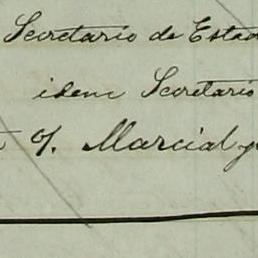 Secretario de Estad
idem Secretario
Marcial y